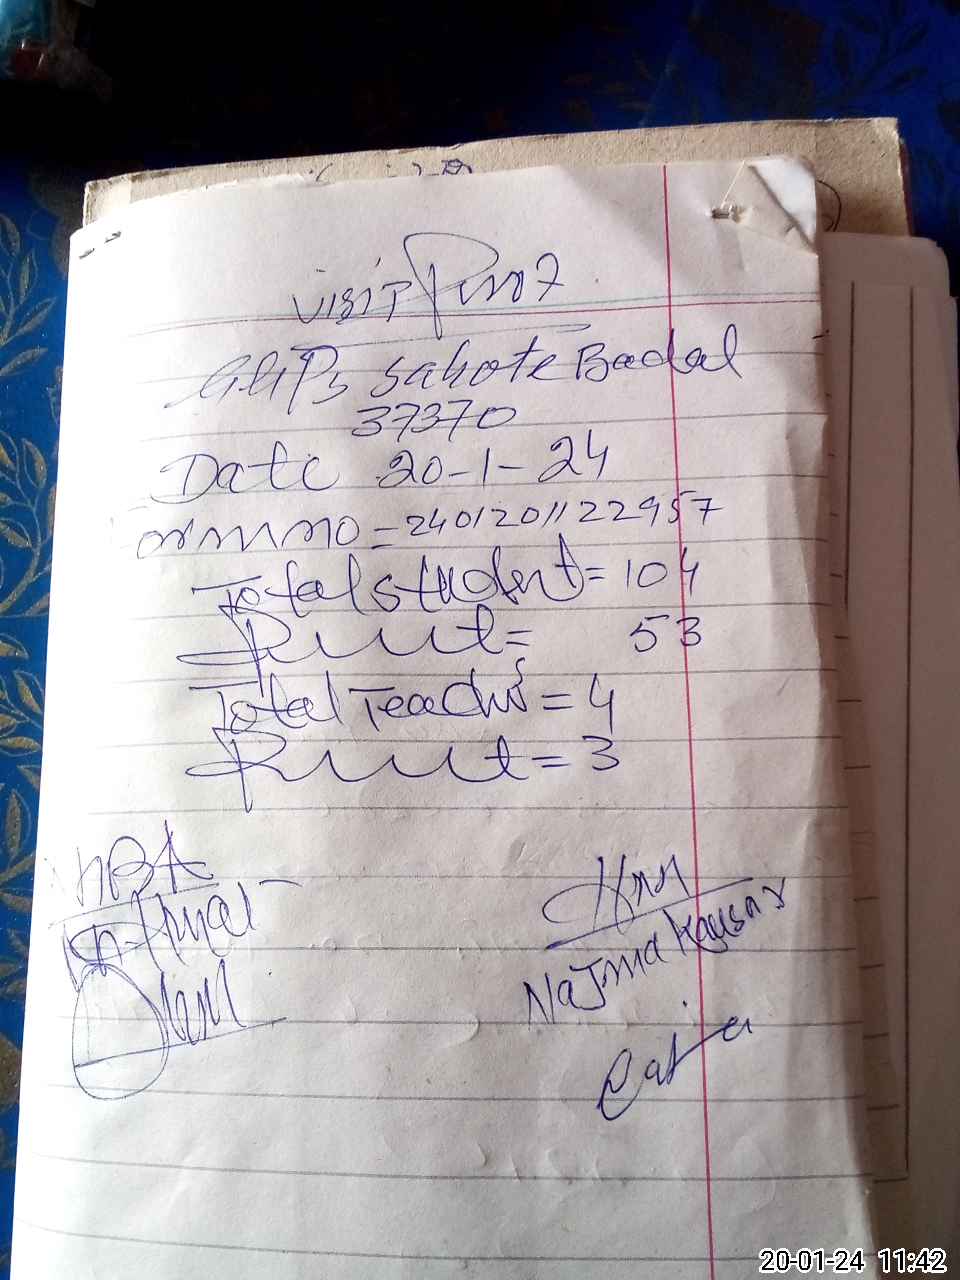 visit Proof
GGPS Sahote Badal
37370
Date 20-1-24
Form no = 240120112 2957
Total student = 104
Present = 53
Total Teacher = 4
Present = 3
Najma Kausar
20-01-24 11:42